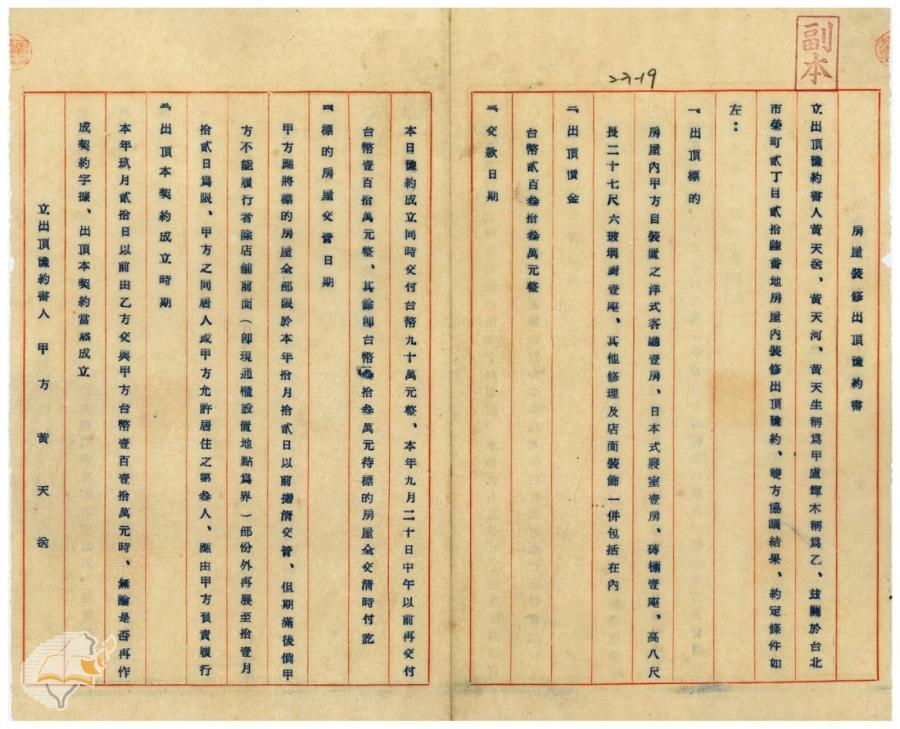 副本
27-19
房屋裝修出頂豫約書
立出頂豫約書人黃天送、黃天河、黃天生稱為甲盧輝木稱為乙、玆關於台北
市榮町貳丁目貳拾陸番地房屋內裝修出頂豫約、雙方協議結果、約定條件如
左：
一、出頂標的
房屋內甲方自裝置之洋式客廳壹房、日本式寢室壹房、磚櫃壹座、高八尺
長二十七尺六玻璃櫥壹座、其他修理及店面裝飾一併包括在內
二、出頂價金
台幣貳百叁拾叁萬元整
三、交款日期
本日豫約成立同時交付台幣九十萬元整、本年九月二十日中午以前再交付
台幣壹百拾萬元整、其餘卽台幣叁拾叁萬元待標的房屋全交清時付訖
標的房屋交管日期
甲方應將標的房屋全部限於本年拾月拾貳日以前搬清交管、但期滿後倘甲
方不能履行者除店舖前面（卽現通櫃設置地點爲界）部份外再展至拾壹月
拾貳日爲限、甲方之同居人或甲方允許居住之第叁人、應由甲方負責履行
出頂本契約成立時期
本年玖月貳拾日以前由乙方交與甲方台幣壹百壹拾萬元時、無論是否再作
成契約字據、出頂本契約當爲成立
立出頂豫約書人 甲方 黃天送